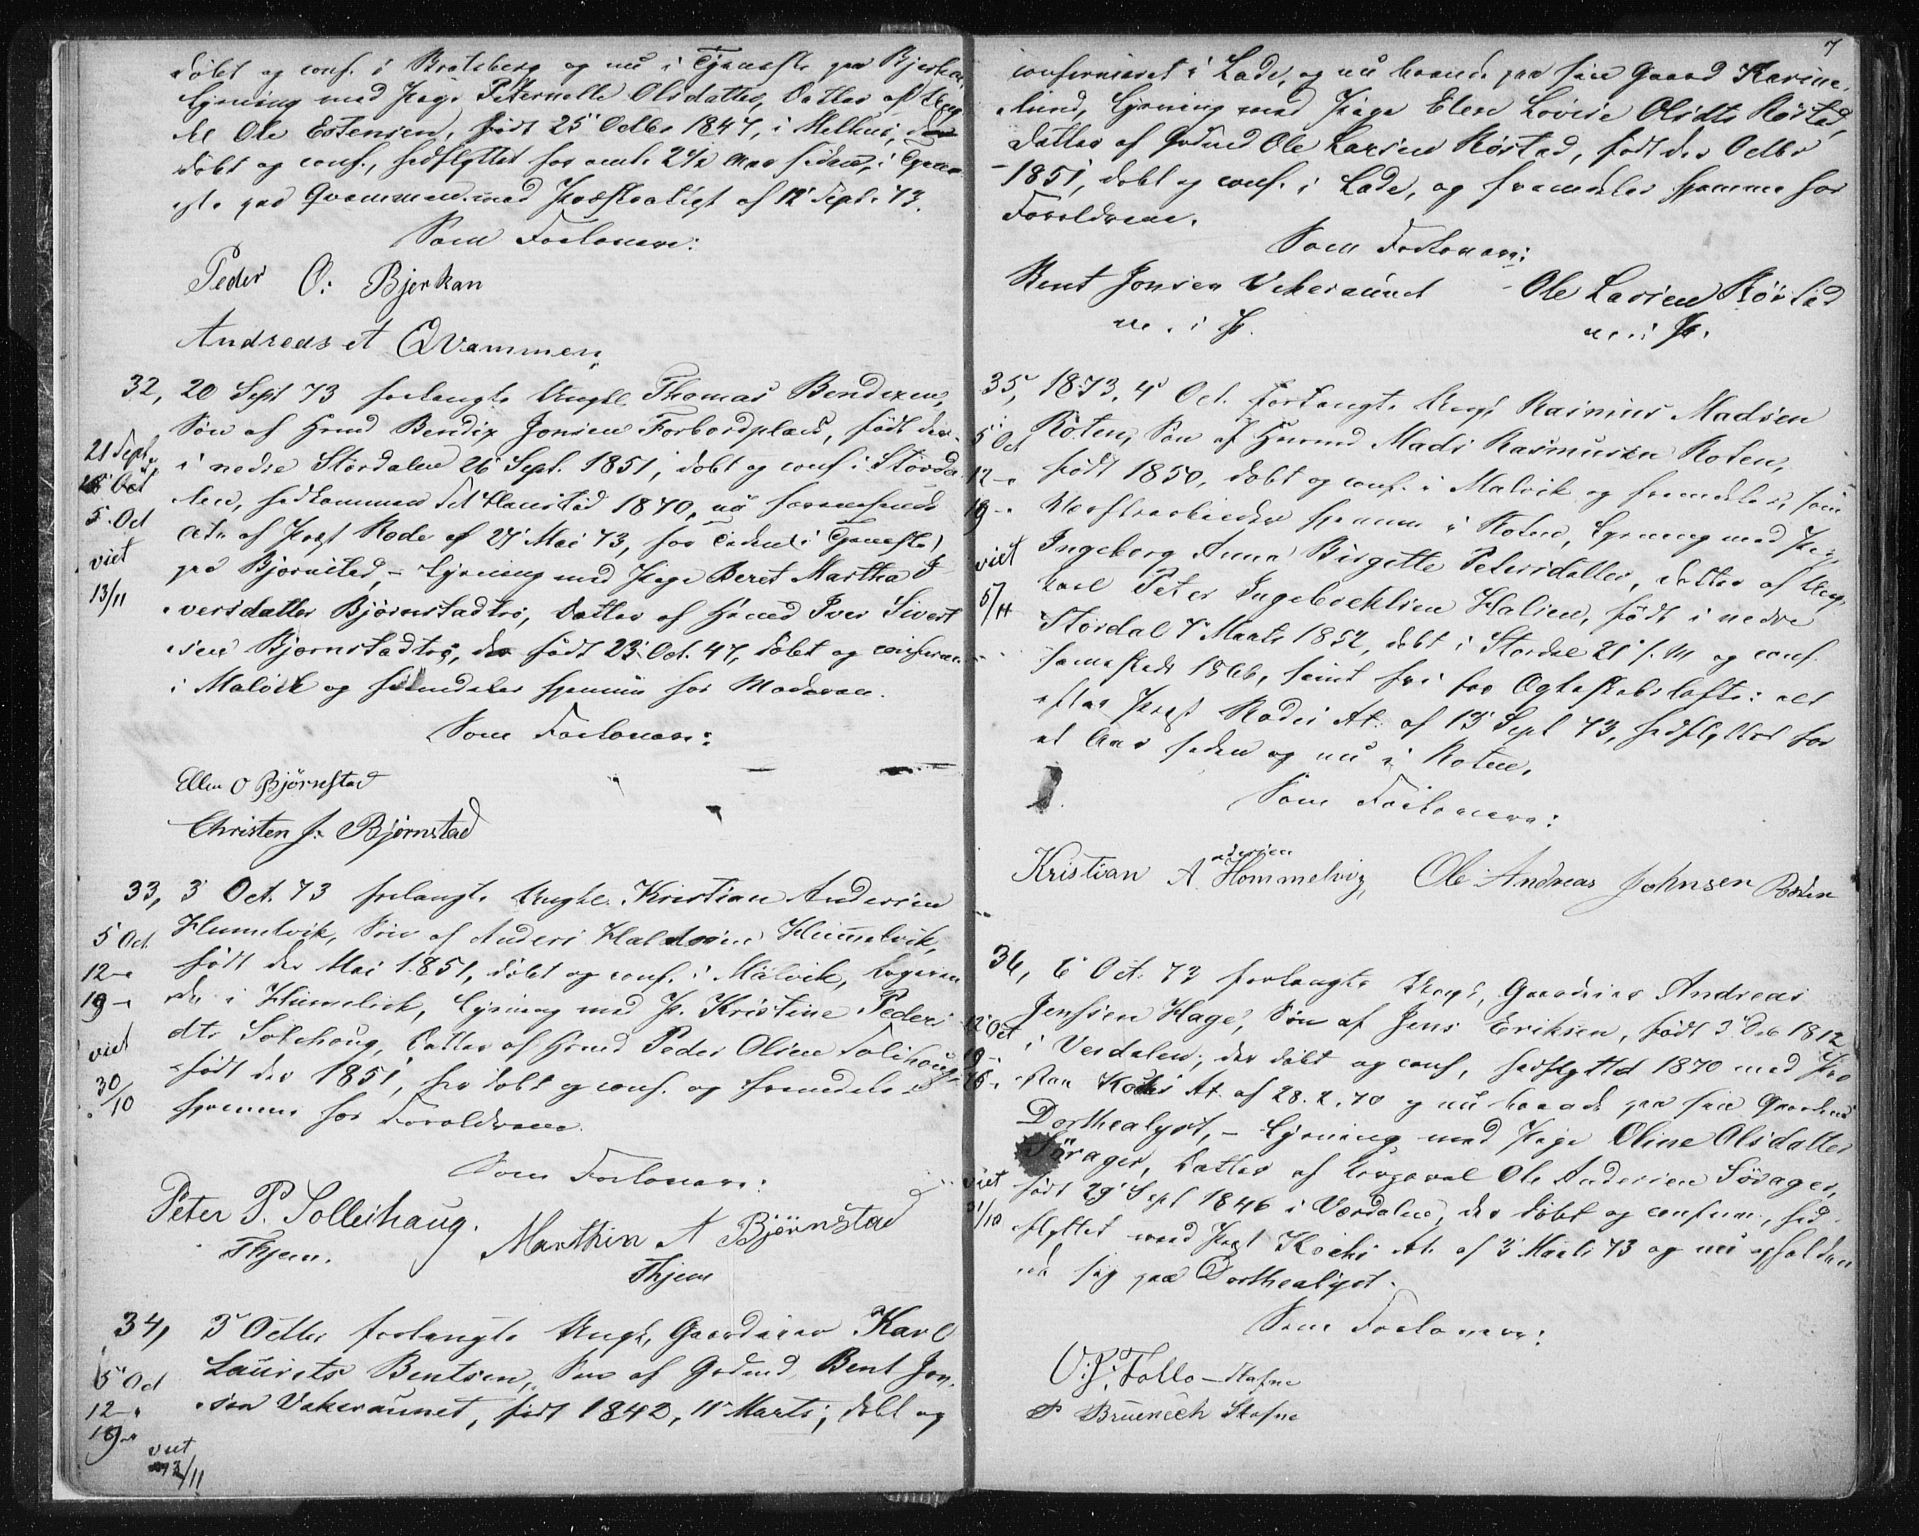 døbt og conf. i Bratsberg og nu i Tjeneste paa Bjerkan,
Lysning med Pige Peternelle Olsdatter, Datter af Ung
Ole Estensen, født 25 Octbr 1847, i Melhus,
døbt og conf., hidflyttet for omtr. 2½ Aar siden, i Tjene-
ste paa Qvammen med Præsteattest af 12 Sept. 73.
Som Forlovere:
Peder O: Bjerkan
Andreas et Qvammen
32, 20 Sept 73 forlangte Ungkl. Thomas Bendixen,
Søn af Hmd Bendix Jonsen Forbordplads, født der
21 Sept
i nedre Stördalen 26 Sept. 1851, døbt og conf. i Störda
Oct
len, hidkommen til Hanestad 1870,
5. Oct
Att. af Prst Rode af 27 Mai 73, for Tiden i Tjeneste
viet
paa Bjørnstad, – Lysning med Pige Beret Martha I-
13/11
versdatter Bjørnstadtrø, Datter af Hmd Iver Sivert
sen Bjørnstadtrø, født 23 Oct. 47, døbt og confirm.
i Malvik og fremdeles hjemme hos Moderen.
Som Forlovere:
Ellen O Bjørnstad
Christen J: Bjørnstad
33, 3 Oct. 73 forlangte Ungkl. Kristian Andersen
5 Oct
Hummelvik, Søn af Anders Haldorsen Hummelvik,
12 –
født der Mai 1851, døbt og conf. i Malvik, logeren
19 –
de i Hummelvik, Lysning med P. Kristine Peders
viet
dtr Solehoug, Datter af Hmd Peder Olsen Solehoug
30/10
født der 1851, døbt og conf. og fremdeles
hjemme hos Forældrene.
Som Forlovere:
Peter P. Solleihaug.
Thjem.
Marthin A Bjørnstad
Thjem
34, 3 Octbr forlangte Ungk, Gaardeier Karl
5 Oct
Laurits Bentsen, Søn af Grdmd Bent Jon
12 –
sen Vakeraunet, født 1842, 11 Marts, døbt og
19 –
viet
13/11
7
confirmeret i Lade, og nu boende paa sin Gaard Karine
lund, Lysning med Pige Elen Lovise Olsdtr Røstad,
Datter af Grdmd Ole Larsen Røstad, født der Octbr
1851, døbt og conf. i Lade, og fremdeles hjemme hos
Forældrene.
Som Forlovere:
Bent Jonsen Vekeraunet
m. i P.
Ole Larsen Røstad
m. i P.
35, 1873, 4 Oct. forlangte Ungk Rasmus Madsen
5 Oct
Roten, Søn af Husmd Mads Rasmusen Roten,
12 –
født 1850, døbt og conf. i Malvik og fremdeles, som
19 –
Værftsarbeider hjemme i Roten, Lysning med Pi-
viet
Ingeborg Anna Birgitte Petersdatter, Datter af Ung
karl Peter Ingebrektsen Halsen, født i nedre
6/11
Stördal 7 Marts 1852, døbt i Stördal 21 s. M og conf.
sammesteds 1866, samt fri for Ægteskabsløfte: alt
efter Prst Rodes At. af 13 Sept 73, hidflyttet for
et Aar siden og nu i Roten.
Som Forlovere:
Kristian Andersen Hommelvig,
Ole Andreas Johnsen Roten
36, 6 Oct. 73 forlangte Ungk, Gaardeier Andreas
12 Oct
Jenssen Hage, Søn af Jens Eriksen, født 3 Deb 1812
19 –
i Verdalen, der døbt og conf, hidflyttet 1870 med Pro
26 –
sten Kochs At. af 28. 2. 70 og nu boende paa sin Gaard
Dorthealyst, – Lysning med Pige Oline Olsdatter
Sörager, Datter af Ole Andersen Sörager,
viet
født 29 Sept 1846 i Værdalen, der døbt og confirm., hid
21/10
flyttet med Prst Kochs At. af 3 Marts 73 og nu opholden
de sig paa Dorthealyst.
Som Forlovere:
O. J. Follo – Stafne
P Bruenech Stafne